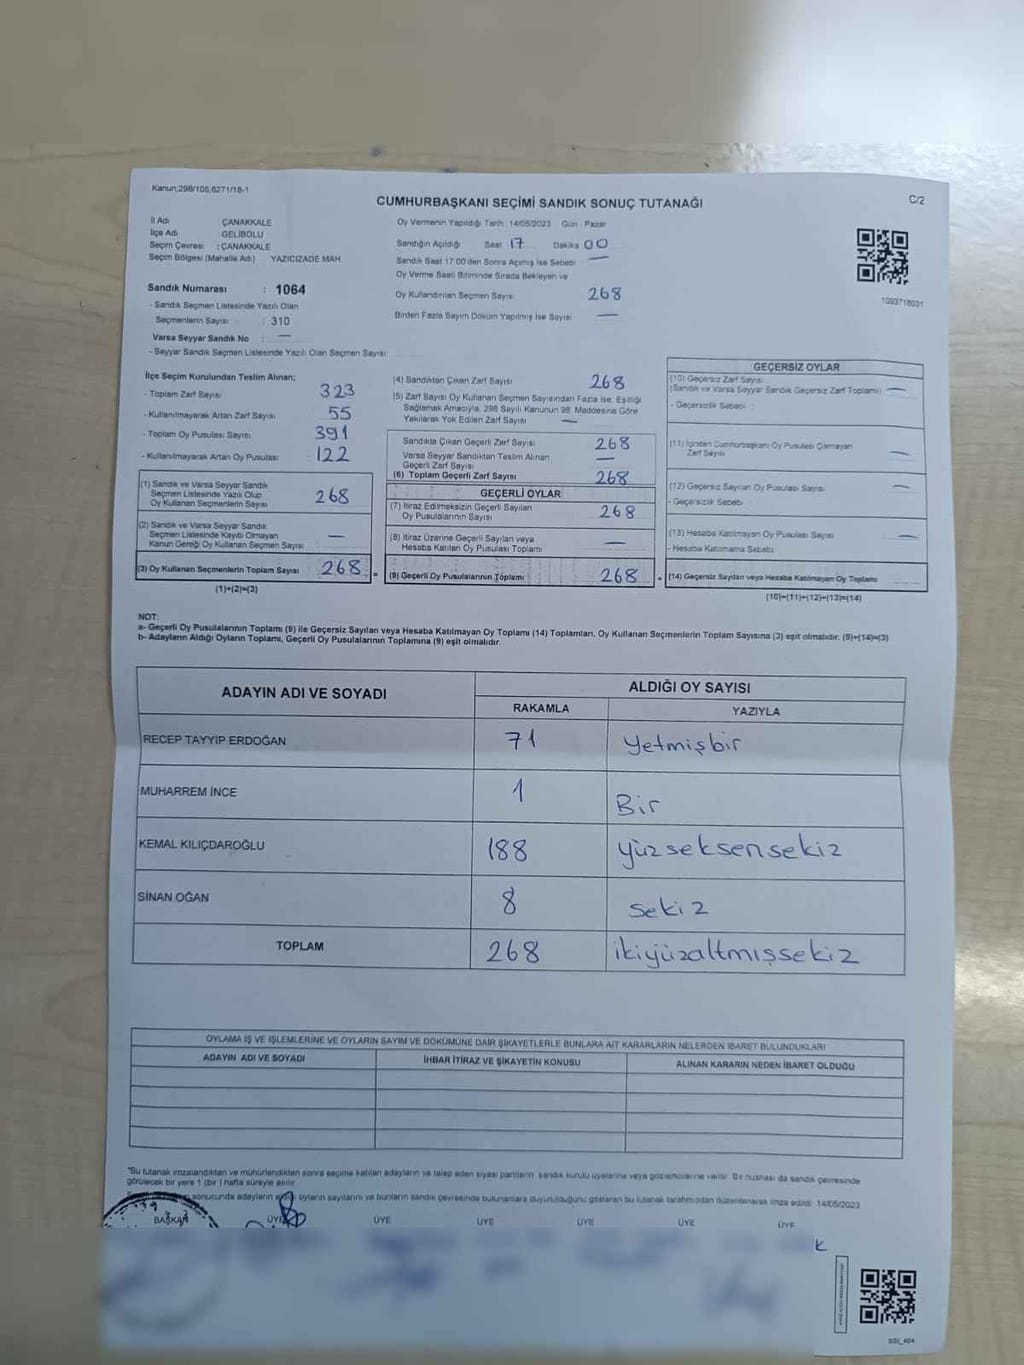 Kanun:298/105,6271/18-1
C/2
CUMHURBAŞKANI SEÇİMİ SANDIK SONUÇ TUTANAĞI
İl Adı : ÇANAKKALE
İlçe Adı : GELİBOLU
Seçim Çevresi : ÇANAKKALE
Seçim Bölgesi (Mahalle Adı) YAZICIZADE MAH.
Sandık Numarası : 1064
- Sandık Seçmen Listesinde Yazılı Olan
Seçmenlerin Sayısı : 310
Varsa Seyyar Sandık No : —
- Seyyar Sandık Seçmen Listesinde Yazılı Olan Seçmen Sayısı
Oy Vermenin Yapıldığı Tarih : 14/05/2023 Gün : Pazar
Sandığın Açıldığı Saat 17 Dakika 00
Sandık Saat 17:00'den Sonra Açılmış İse Sebebi —
Oy Verme Saati Bitiminde Sırada Bekleyen ve
Oy Kullandırılan Seçmen Sayısı 268
Birden Fazla Sayım Döküm Yapılmış İse Sayısı —
1093718031
İlçe Seçim Kurulundan Teslim Alınan;
- Toplam Zarf Sayısı 323
- Kullanılmayarak Artan Zarf Sayısı 55
- Toplam Oy Pusulası Sayısı 391
- Kullanılmayarak Artan Oy Pusulası 122
(1) Sandık ve Varsa Seyyar Sandık
Seçmen Listesinde Yazılı Olup
Oy Kullanan Seçmenlerin Sayısı 268
(2) Sandık ve Varsa Seyyar Sandık
Seçmen Listesinde Kaydı Olmayan
Kanun Gereği Oy Kullanan Seçmen Sayısı —
(3) Oy Kullanan Seçmenlerin Toplam Sayısı 268 =
(1)+(2)=(3)
(4) Sandıktan Çıkan Zarf Sayısı 268
(5) Zarf Sayısı Oy Kullanan Seçmen Sayısından Fazla İse, Eşitliği
Sağlamak Amacıyla, 298 Sayılı Kanunun 98. Maddesine Göre
Yakılarak Yok Edilen Zarf Sayısı —
Sandıkta Çıkan Geçerli Zarf Sayısı 268
Varsa Seyyar Sandıktan Teslim Alınan
Geçerli Zarf Sayısı —
(6) Toplam Geçerli Zarf Sayısı 268
GEÇERLİ OYLAR
(7) İtiraz Edilmeksizin Geçerli Sayılan
Oy Pusulalarının Sayısı 268
(8) İtiraz Üzerine Geçerli Sayılan veya
Hesaba Katılan Oy Pusulası Toplamı —
(9) Geçerli Oy Pusulalarının Toplamı 268 +
GEÇERSİZ OYLAR
(10) Geçersiz Zarf Sayısı
(Sandık ve Varsa Seyyar Sandık Geçersiz Zarf Toplamı) —
- Geçersizlik Sebebi :
(11) İçinden Cumhurbaşkanı Oy Pusulası Çıkmayan
Zarf Sayısı —
(12) Geçersiz Sayılan Oy Pusulası Sayısı —
- Geçersizlik Sebebi
(13) Hesaba Katılmayan Oy Pusulası Sayısı —
- Hesaba Katılmama Sebebi
(14) Geçersiz Sayılan veya Hesaba Katılmayan Oy Toplamı
(10)+(11)+(12)+(13)=(14)
NOT:
a- Geçerli Oy Pusulalarının Toplamı (9) ile Geçersiz Sayılan veya Hesaba Katılmayan Oy Toplamı (14) Toplamları, Oy Kullanan Seçmenlerin Toplam Sayısına (3) eşit olmalıdır. (9)+(14)=(3)
b- Adayların Aldığı Oyların Toplamı, Geçerli Oy Pusulalarının Toplamına (9) eşit olmalıdır.
ADAYIN ADI VE SOYADI
ALDIĞI OY SAYISI
RAKAMLA YAZIYLA
RECEP TAYYİP ERDOĞAN 71 Yetmişbir
MUHARREM İNCE 1 Bir
KEMAL KILIÇDAROĞLU 188 yüzseksensekiz
SİNAN OĞAN 8 sekiz
TOPLAM 268 ikiyüzaltmışsekiz
OYLAMA İŞ VE İŞLEMLERİNE VE OYLARIN SAYIM VE DÖKÜMÜNE DAİR ŞİKAYETLERLE BUNLARA AİT KARARLARIN NELERDEN İBARET BULUNDUKLARI
ADAYIN ADI VE SOYADI İHBAR İTİRAZ VE ŞİKAYETİN KONUSU ALINAN KARARIN NEDEN İBARET OLDUĞU
*Bu tutanak imzalandıktan ve mühürlendikten sonra seçime katılan adayların ve talep eden siyasi partilerin sandık kurulu üyelerine veya gözlemcilerine verilir. Bir nüshası da sandık çevresinde
görülecek bir yere 1 (bir) hafta süreyle asılır.
sonucunda adayların aldığı oyların sayılarını ve bunların sandık çevresinde bulunanlara duyurulduğunu gösteren bu tutanak tarafımızdan düzenlenerek imza edildi. 14/05/2023
BAŞKAN ÜYE ÜYE ÜYE ÜYE ÜYE ÜYE
SSI_404